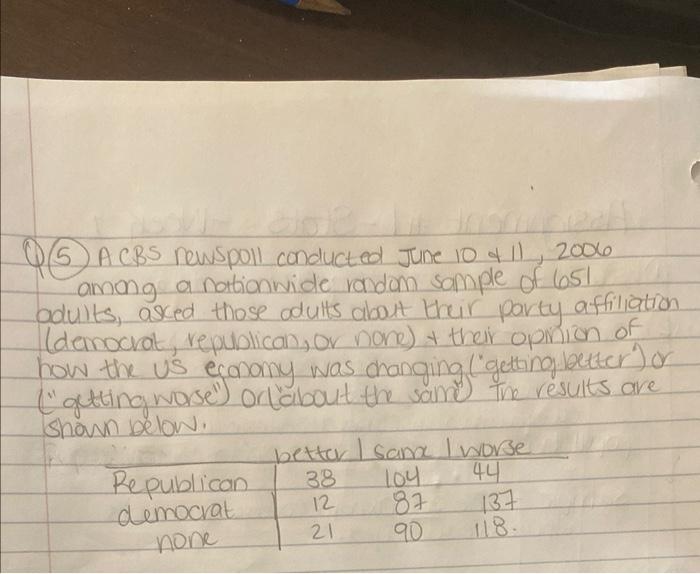 Q5) A CBS newspoll conducted June 10 & 11, 2006
among a nationwide random sample of 651
adults, asked those adults about their party affiliation
(democrat, republican, or none) + their opinion of
how the US economy was changing ("getting better") or
("getting worse") or ("about the same") The results are
shown below.
better | same | worse
Republican 38 104 44
democrat 12 87 137
none 21 90 118.